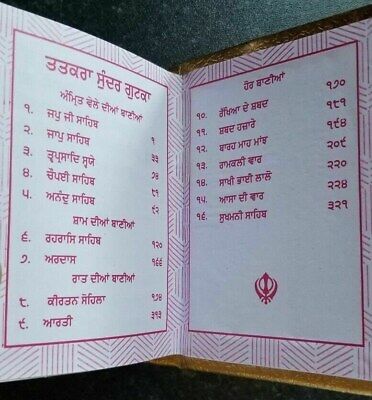 ਤਤਕਰਾ ਸੁੰਦਰ ਗੁਟਕਾ
ਅੰਮ੍ਰਿਤ ਵੇਲੇ ਦੀਆਂ ਬਾਣੀਆਂ
੧. ਜਪੁ ਜੀ ਸਾਹਿਬ ੧
੨. ਜਾਪੁ ਸਾਹਿਬ ੩੩
੩. ਤ੍ਵਪ੍ਰਸਾਦਿ ਸ੍ਵਯੇ ੭੪
੪. ਚੌਪਈ ਸਾਹਿਬ ੮੧
੫. ਅਨੰਦੁ ਸਾਹਿਬ ੯੨
ਸ਼ਾਮ ਦੀਆਂ ਬਾਣੀਆਂ
੬. ਰਹਰਾਸਿ ਸਾਹਿਬ ੧੨੦
੭. ਅਰਦਾਸ ੧੬੬
ਰਾਤ ਦੀਆਂ ਬਾਣੀਆਂ
੮. ਕੀਰਤਨ ਸੋਹਿਲਾ ੧੭੪
੯. ਆਰਤੀ ੩੧੩
ਹੋਰ ਬਾਣੀਆਂ
੧੦. ਰੱਖਿਆ ਦੇ ਸ਼ਬਦ ੧੭੦
੧੧. ਸ਼ਬਦ ਹਜ਼ਾਰੇ ੧੯੧
੧੨. ਬਾਰਹ ਮਾਹ ਮਾਂਝ ੧੯੪
੧੩. ਰਾਮਕਲੀ ਵਾਰ ੨੦੯
੧੪. ਸਾਖੀ ਭਾਈ ਲਾਲੋ ੨੨੦
੧੫. ਆਸਾ ਦੀ ਵਾਰ ੨੨੪
੧੬. ਸੁਖਮਨੀ ਸਾਹਿਬ ੩੨੧